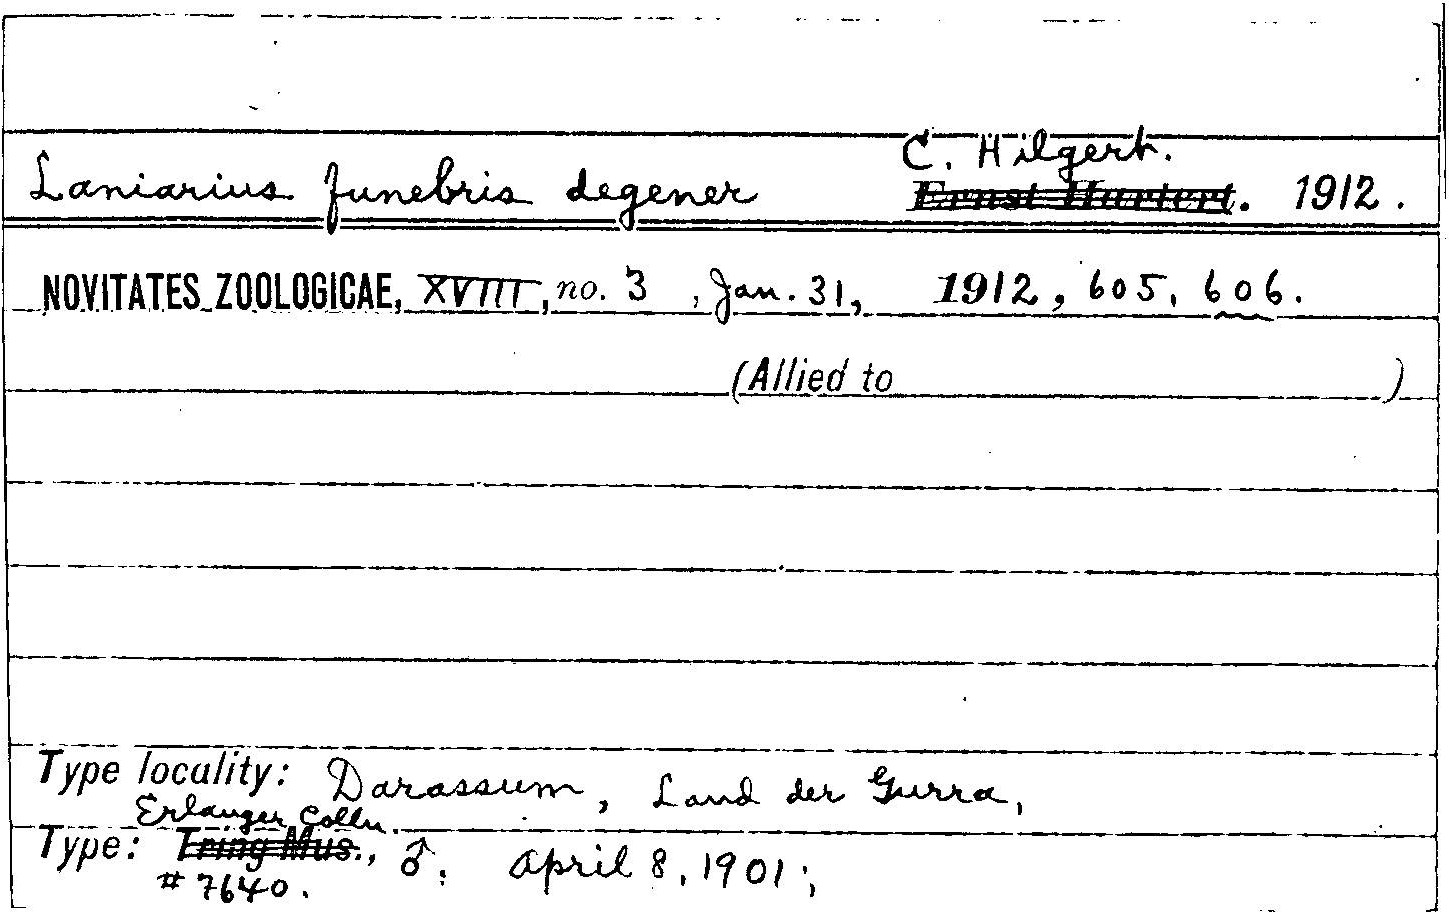 C. Hilgert.
Laniarius funebris degener Ernst Hartert. 1912.
NOVITATES ZOOLOGICAE, XVIII, no. 3, Jan. 31, 1912, 605, 606.
(Allied to )
Type locality: Darassum, Land der Gurra,
Erlanger Colln.
Type: Tring Mus., ♂. April 8, 1901;
# 7640.